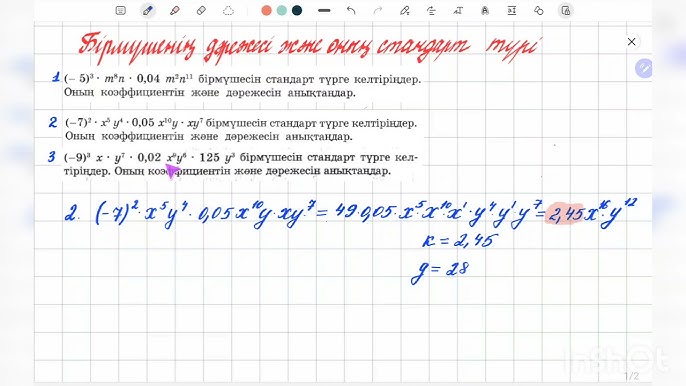 Бірмүшенің дәрежесі және оның стандарт түрі
1 (− 5)³ · m⁸n · 0,04 m²n¹¹ бірмүшесін стандарт түрге келтіріңдер.
Оның коэффициентін және дәрежесін анықтаңдар.
2 (−7)² · x⁵ y⁴ · 0,05 x¹⁰y · xy⁷ бірмүшесін стандарт түрге келтіріңдер.
Оның коэффициентін және дәрежесін анықтаңдар.
3 (−9)³ x · y⁷ · 0,02 x⁹y⁶ · 125 y³ бірмүшесін стандарт түрге кел-
тіріңдер. Оның коэффициентін және дәрежесін анықтаңдар.
2. (−7)² · x⁵y⁴ · 0,05x¹⁰y · xy⁷ = 49·0,05·x⁵·x¹⁰·x¹·y⁴y¹y⁷ = 2,45x¹⁶y¹²
к = 2,45
g = 28
InShOt
1/2